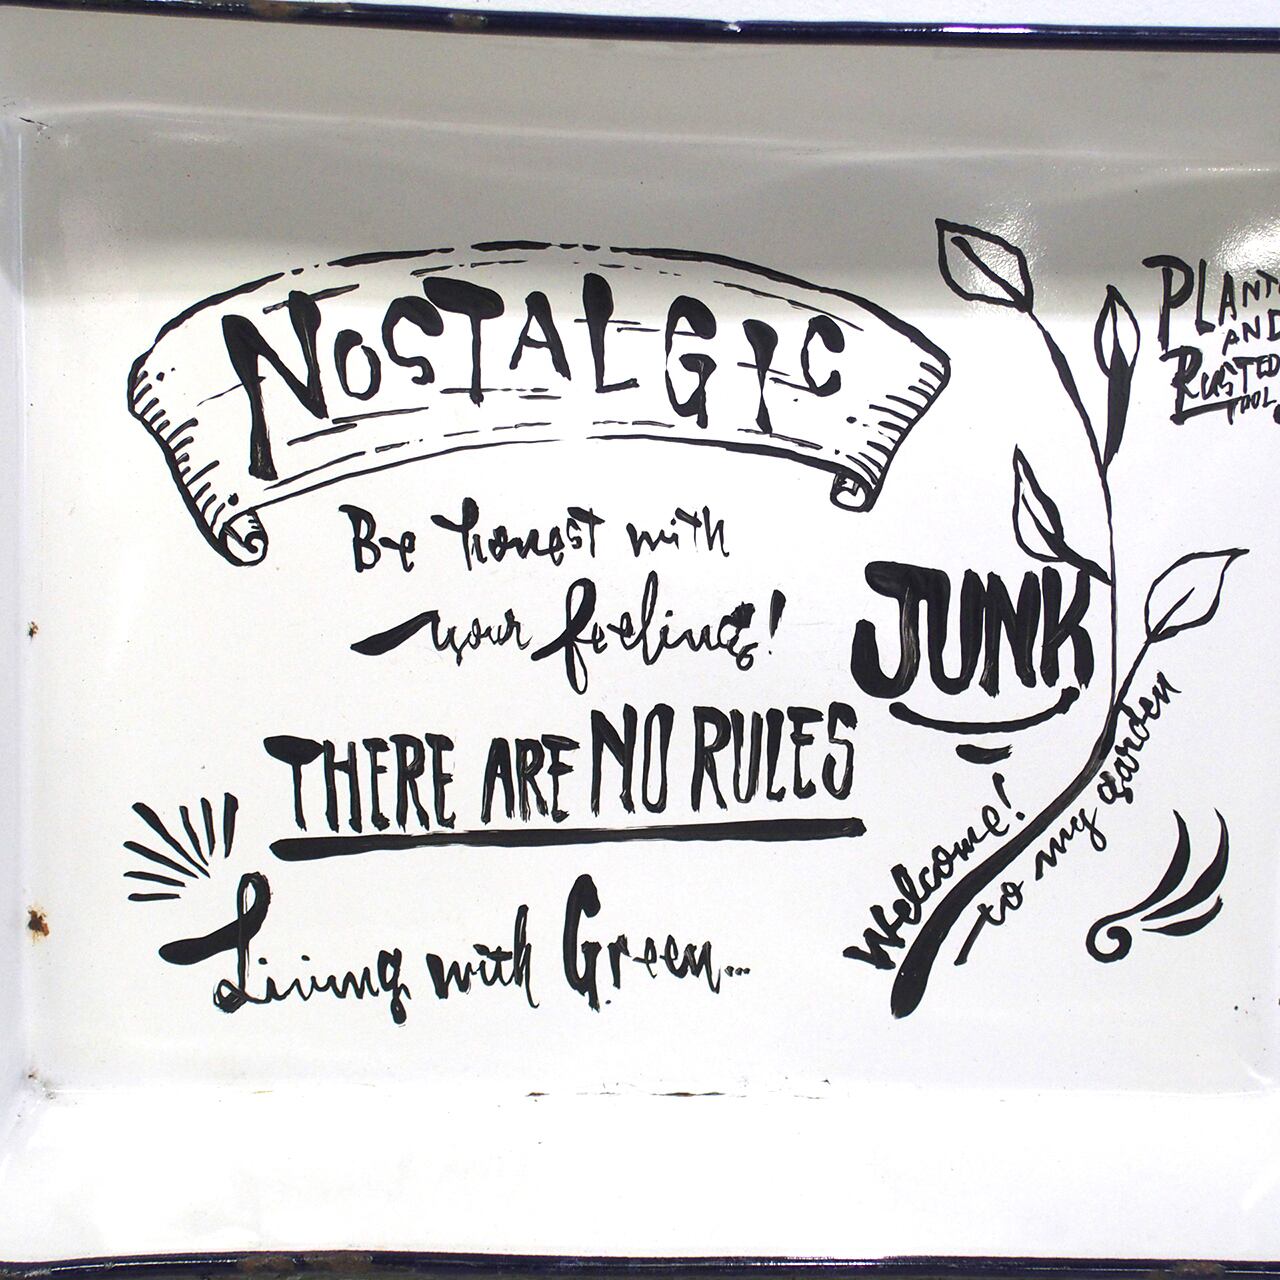 NOSTALGIC
Be honest with
your feelings!
THERE ARE NO RULES
Living with Green...
JUNK
Welcome!
to my garden
PLANT
AND
RUSTED
TOOL